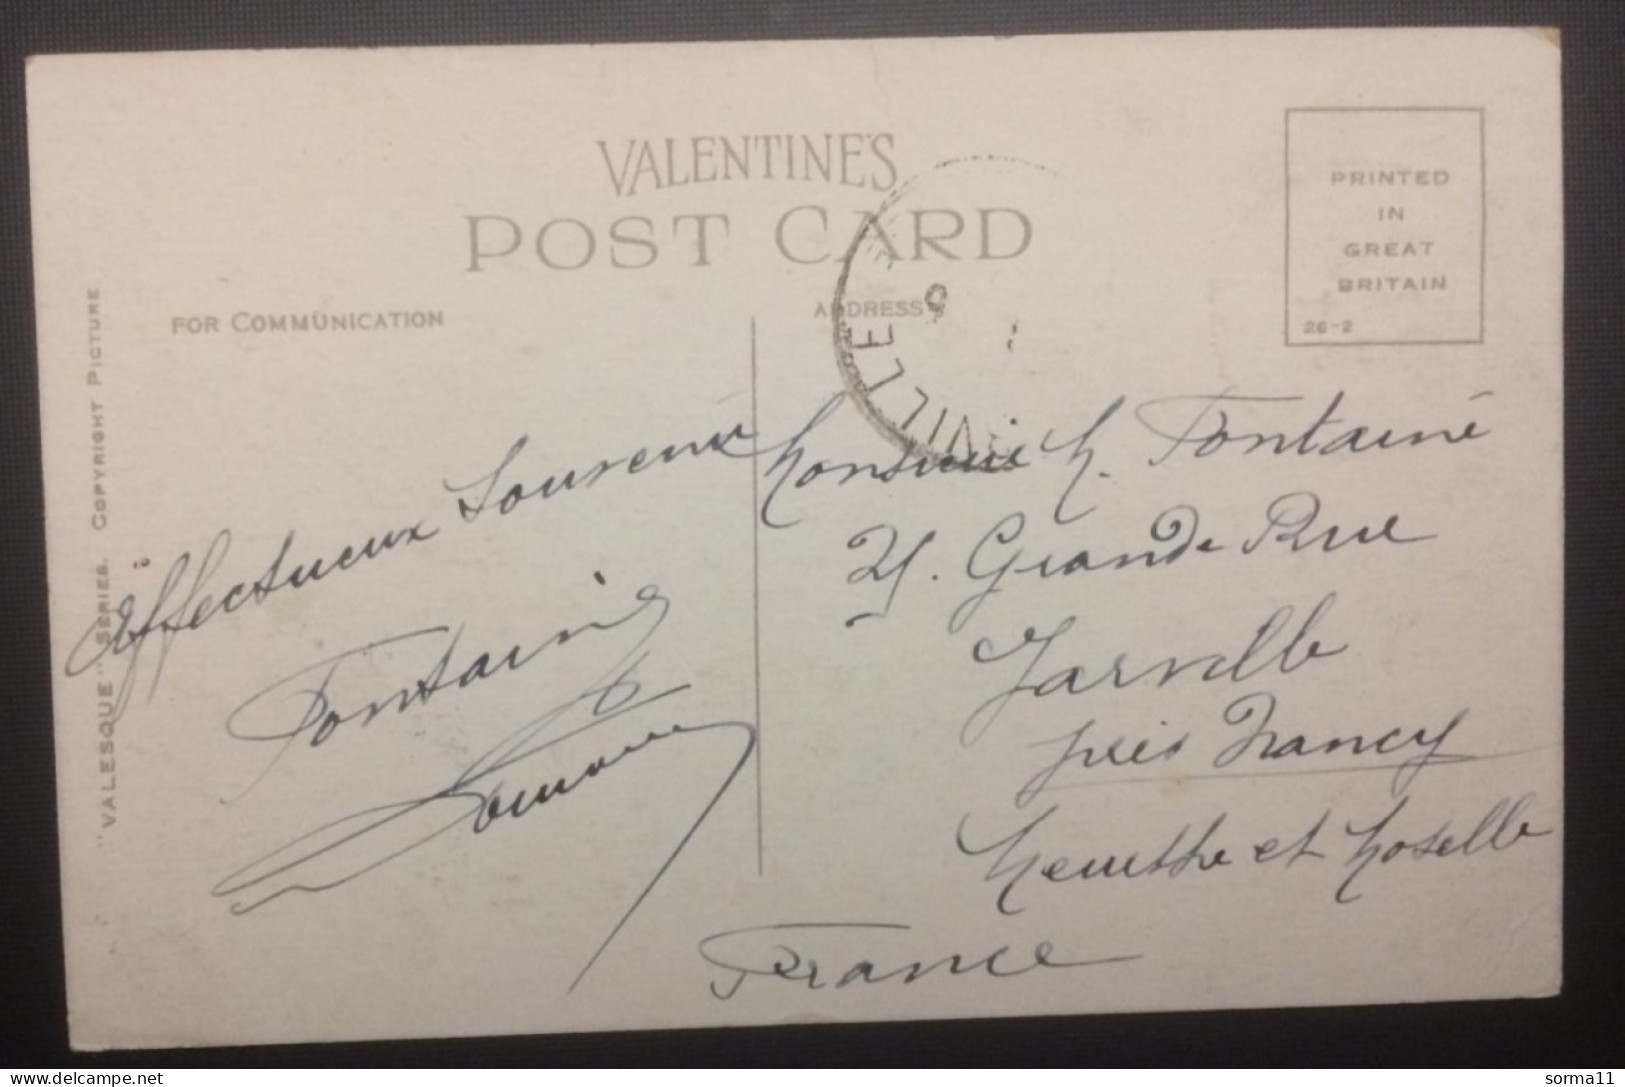 VALENTINE'S
POST CARD
FOR COMMUNICATION
ADDRESS
PRINTED
IN
GREAT
BRITAIN
26-2
"VALESQUE" SERIES. COPYRIGHT PICTURE
Affectueux Souvenir
Fontaine
Monsieur H. Fontaine
Grande Rue
Jarville
près Nancy
Meurthe et Moselle
France
VILLE
delcampe.net
sorma11